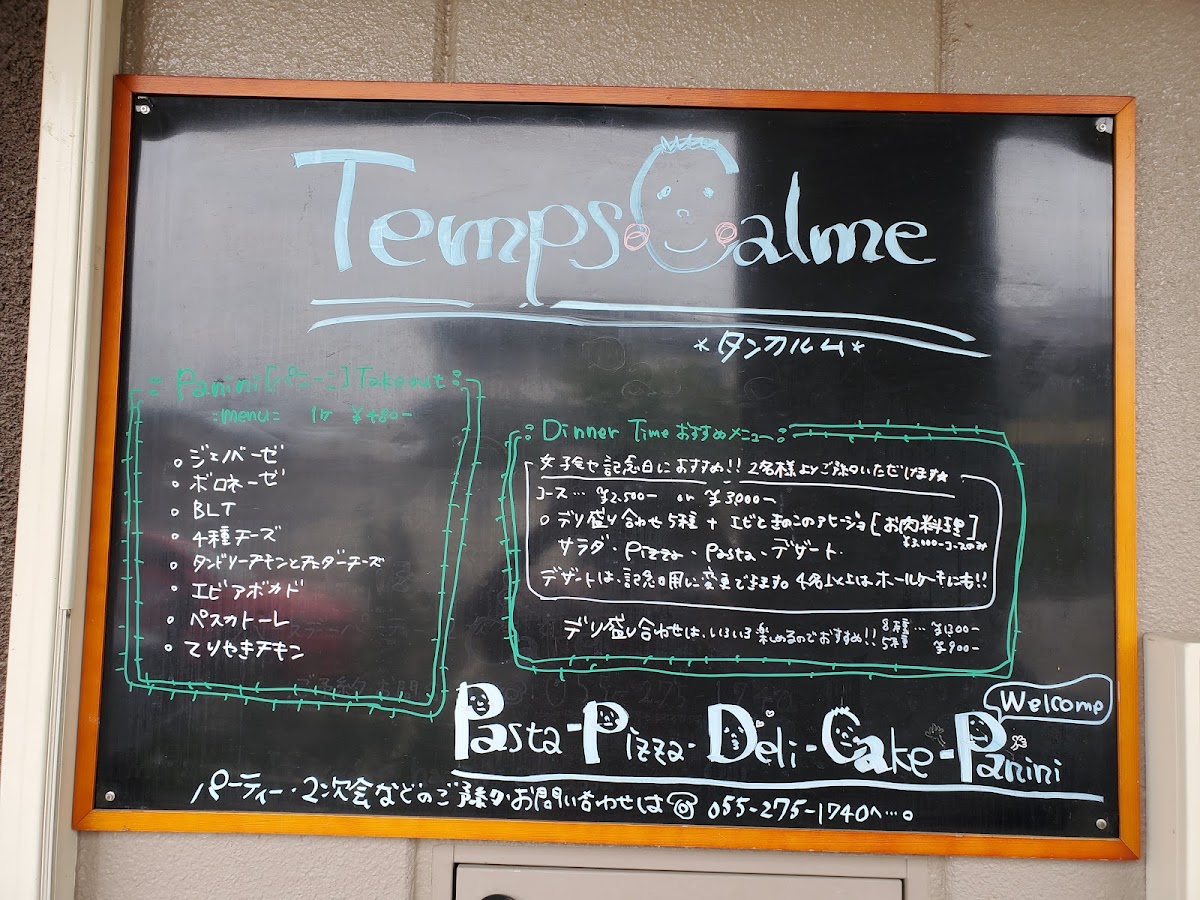 Temps Calme
*タンカルム*
Panini [パニーニ] Takeout
menu 1ヶ ¥480-
ジェノベーゼ
ボロネーゼ
BLT
4種チーズ
タンドリーチキンとチェダーチーズ
エビアボカド
ペスカトーレ
てりやきチキン
Dinner Time おすすめメニュー
女子会や記念日におすすめ!! 2名様よりご予約いただけます★
コース… ¥2,500- or ¥3,000-
デリ盛り合わせ5種 + エビときのこのアヒージョ [お肉料理]
¥3,000-コースのみ
サラダ・Pizza・Pasta・デザート.
デザートは、記念日用に変更できます。4名以上はホールケーキにも!!
デリ盛り合わせは、いろいろ楽しめるのでおすすめ!! 8種… ¥1300-
5種 ¥900-
Welcome
Pasta-Pizza-Deli-Cake-Panini
パーティー・2次会などのご予約・お問い合わせは☎055-275-1740へ…。